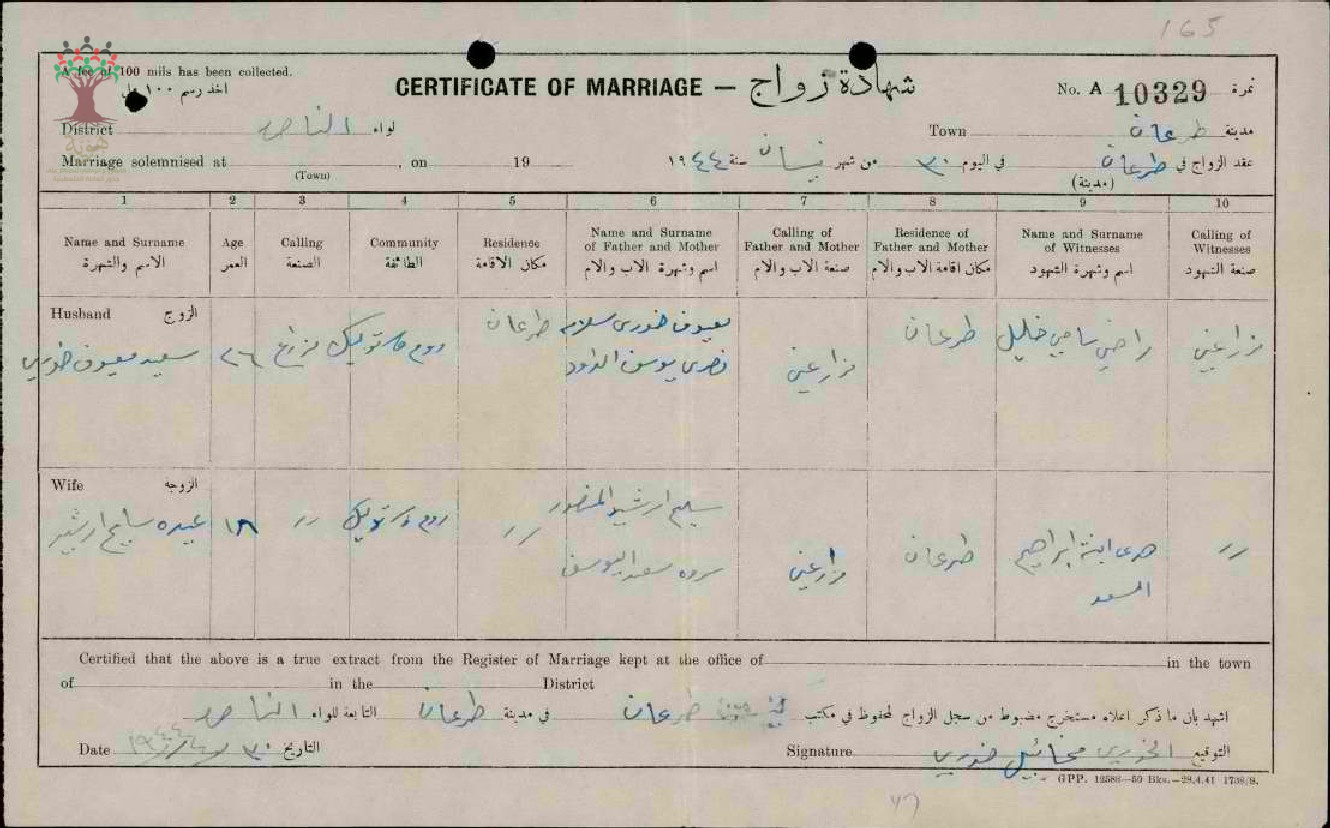 165
A fee of 100 mils has been collected.
اخذ رسم ١٠٠ مل
CERTIFICATE OF MARRIAGE — شهادة زواج
No. A 10329 نمرة
District الناصره لواء
Town طرعان مدينة
Marriage solemnised at , on 19
(Town)
عقد الزواج في طرعان في اليوم ٣٠ من شهر نيسان سنة ١٩٤٤
(مدينة)
1 2 3 4 5 6 7 8 9 10
Name and Surname Age Calling Community Residence Name and Surname of Father and Mother Calling of Father and Mother Residence of Father and Mother Name and Surname of Witnesses Calling of Witnesses
الاسم والشهرة العمر الصنعة الطائفة مكان الاقامة اسم وشهرة الاب والام صنعة الاب والام مكان اقامة الاب والام اسم وشهرة الشهود صنعة الشهود
Husband الزوج
سعيد معيوف خوري ٢٦ مزارع روم كاثوليك طرعان معيوف خوري سلامه طرعان راضي ناجي خليل
يوسف الداود
Wife الزوجه
عبيده سليم ارشيد ١٨ 〃 روم كاثوليك 〃 سليم ارشيد المنصور
سعد اليوسف طرعان ابنة ابراهيم 〃
Certified that the above is a true extract from the Register of Marriage kept at the office of in the town
of in the District
اشهد بان ما ذكر اعلاه مستخرج مضبوط من سجل الزواج المحفوظ في مكتب طرعان في مدينة طرعان التابعة للواء الناصره
Date ٣٠ التاريخ
Signature الخوري مخائيل خوري التوقيع
GPP. 12588—50 Bks.—28.4.41 1738/S.